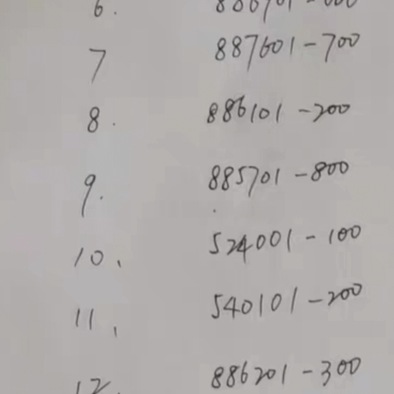 6.
7 887601-700
8. 886101-200
9. 885701-800
10. 524001-100
11. 540101-200
12. 886201-300